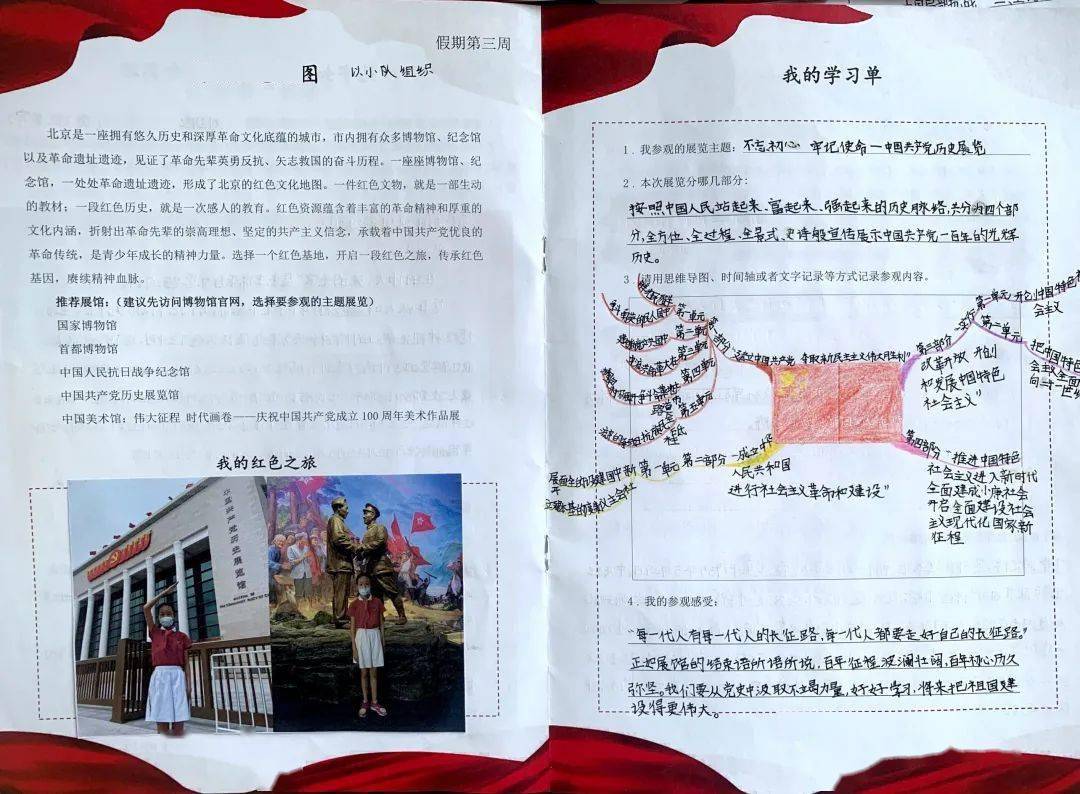 假期第三周
图 以小队组织
北京是一座拥有悠久历史和深厚革命文化底蕴的城市，市内拥有众多博物馆、纪念馆
以及革命遗址遗迹，见证了革命先辈英勇反抗、矢志救国的奋斗历程。一座座博物馆、纪
念馆，一处处革命遗址遗迹，形成了北京的红色文化地图。一件红色文物，就是一部生动
的教材；一段红色历史，就是一次感人的教育。红色资源蕴含着丰富的革命精神和厚重的
文化内涵，折射出革命先辈的崇高理想、坚定的共产主义信念，承载着中国共产党优良的
革命传统，是青少年成长的精神力量。选择一个红色基地，开启一段红色之旅，传承红色
基因，赓续精神血脉。
推荐展馆：（建议先访问博物馆官网，选择要参观的主题展览）
国家博物馆
首都博物馆
中国人民抗日战争纪念馆
中国共产党历史展览馆
中国美术馆：伟大征程 时代画卷——庆祝中国共产党成立 100 周年美术作品展
我的红色之旅
共产党历史展览馆
我的学习单
1．我参观的展览主题：不忘初心 牢记使命—中国共产党历史展览
2．本次展览分哪几部分：
按照中国人民站起来、富起来、强起来的历史脉络，共分为四个部
分，全方位、全过程、全景式、史诗般宣传展示中国共产党一百年的光辉
历史。
3．请用思维导图、时间轴或者文字记录等方式记录参观内容。
第一单元
第二单元
第三单元
第四单元
第五单元
"建立中国共产党 夺取新民主主义革命伟大胜利"
第二部分
第一单元
"成立中华
人民共和国
进行社会主义革命和建设"
第三部分
"实行
改革开放 开创
和发展中国特色
社会主义"
第一单元 开创中国特色社
会主义
第二单元
把中国特色
社会主义全面
向二十一世纪
第四部分
"推进中国特色
社会主义进入新时代
全面建成小康社会
开启全面建设社会
主义现代化国家新
征程
4．我的参观感受：
"每一代人有每一代人的长征路，每一代人都要走好自己的长征路。"
正如展馆的结束语所说，百年征程波澜壮阔，百年初心历久
弥坚。我们要从党史中汲取不竭力量，好好学习，将来把祖国建
设得更伟大。